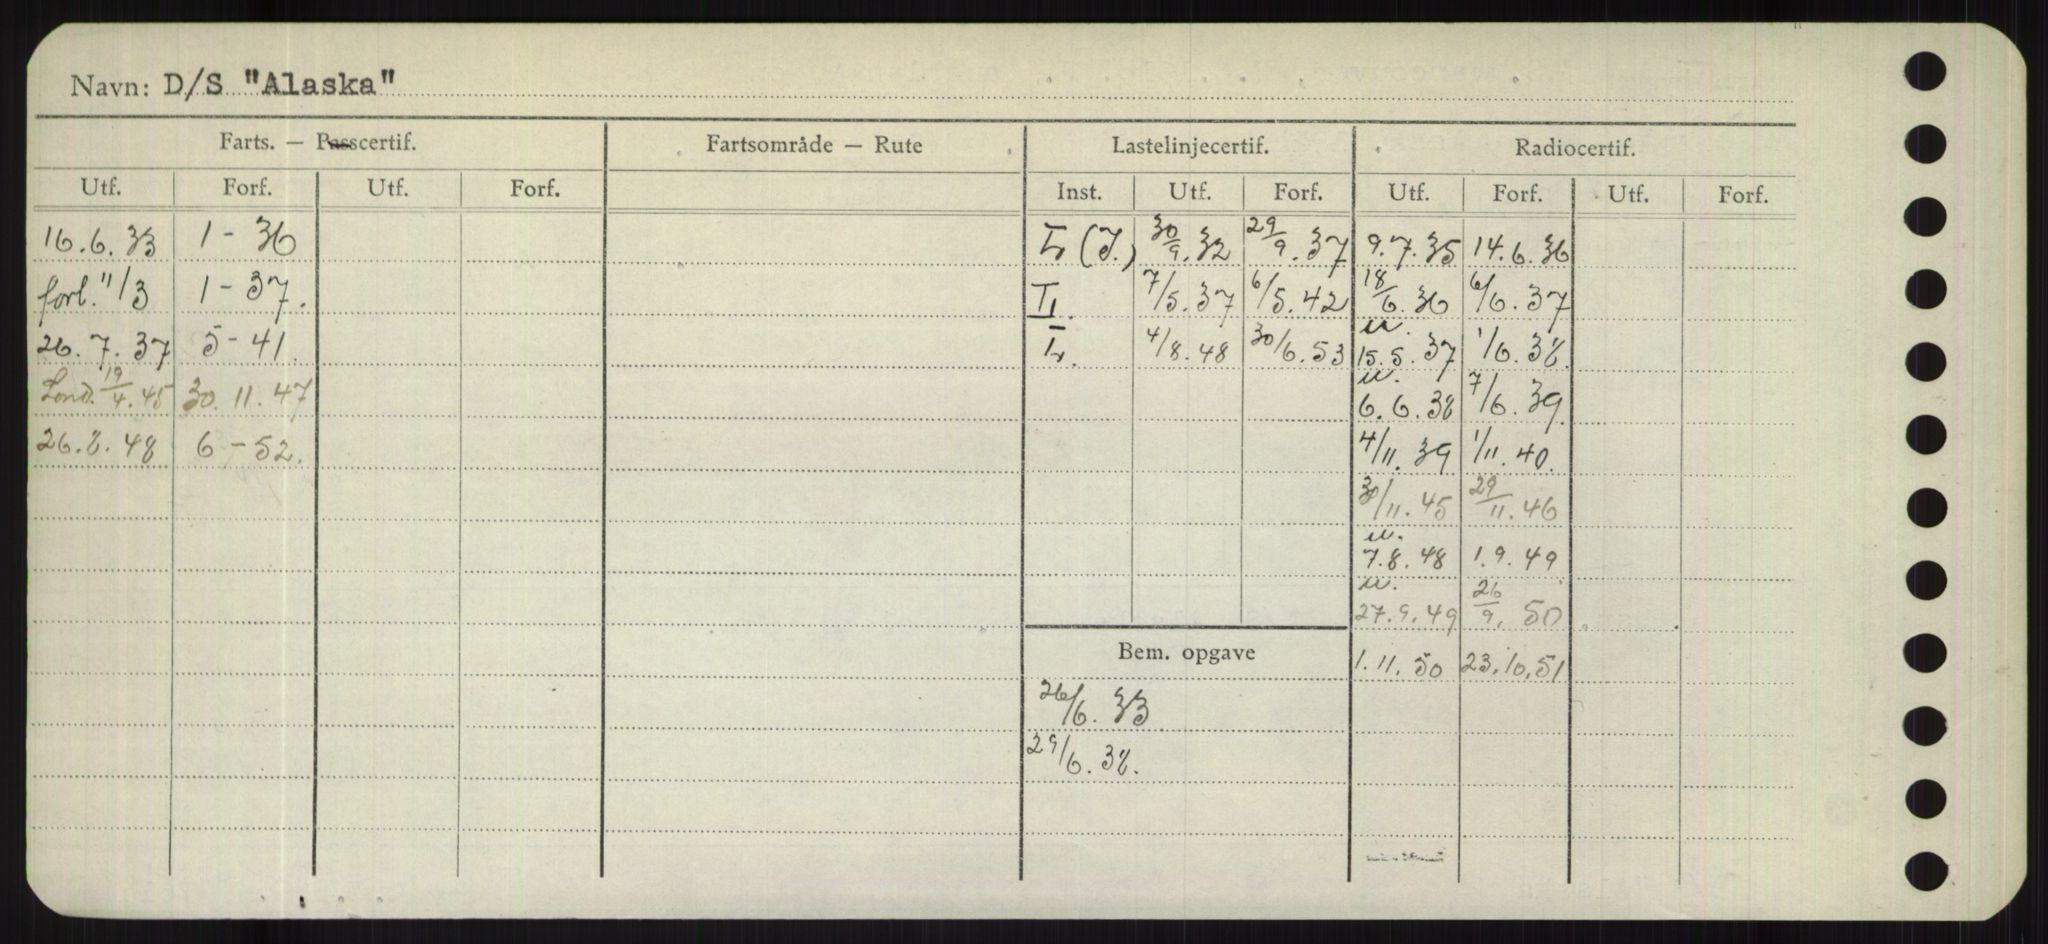 Navn: D/S "Alaska"
Farts. — Passcertif. Fartsområde — Rute Lastelinjecertif. Radiocertif.
Utf. Forf. Utf. Forf. Inst. Utf. Forf. Utf. Forf. Utf. Forf.
16.6.33 1 - 36 (I.) 30/9.32 29/9.37 9.7.35 14.6.36
forl. 11/3 1 - 37. 7/5.37 6/5.42 18/6.36 6/6.37
26.7.37 5 - 41. 4/8.48 30/6.53 u. 15.5.37 1/6.38.
Lond. 19/4.45 30.11.47 u. 6.6.38 7/6.39
26.8.48 6 - 52. 4/11.39 1/11.40.
30/11.45 29/11.46
u. 7.8.48 1.9.49
u. 27.9.49 26/9.50
Bem. opgave 1.11.50 23.10.51
26/6.33
29/6.38.